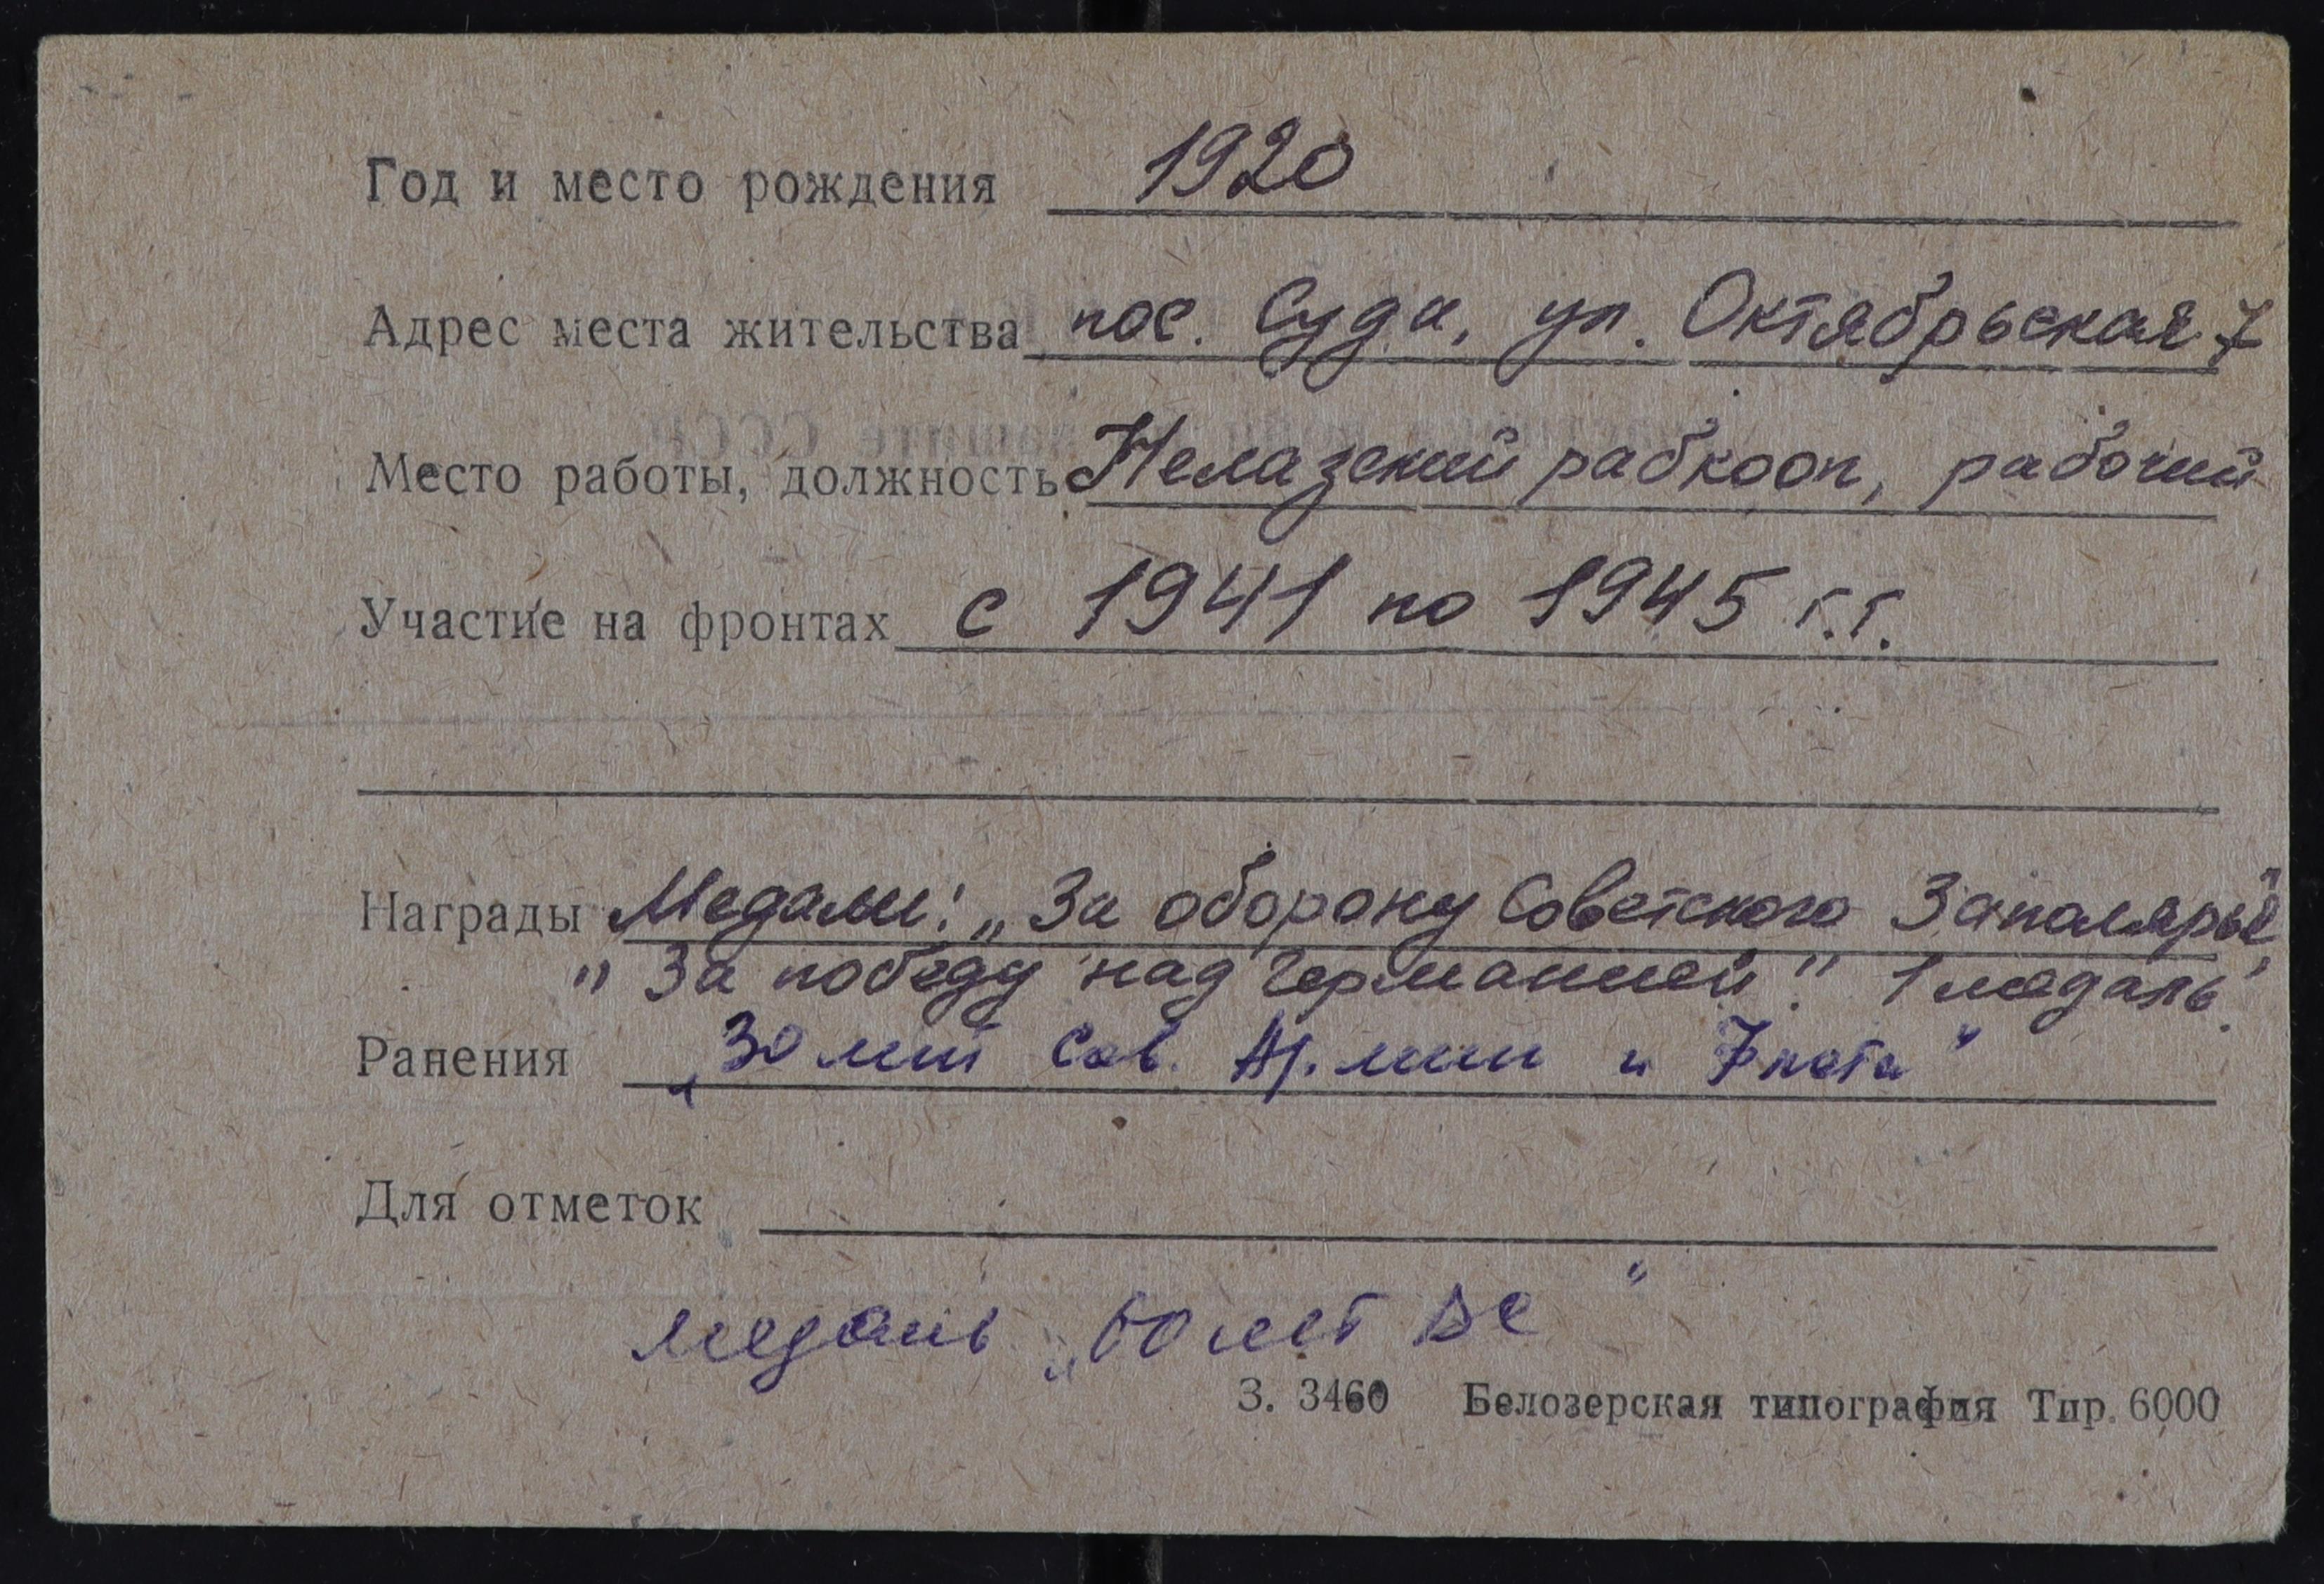 Год и место рождения 1920
Адрес места жительства пос. Суда, ул. Октябрьская 7
Место работы, должность Нелазский рабкооп, рабочий
Участие на фронтах с 1941 по 1945 г.г.
Награды Медали: „За оборону Советского Заполярья"
"За победу над Германией". 1 медаль.
Ранения „30 лет Сов. Армии и Флота"
Для отметок
медаль „60 лет ВС"
З. 3460 Белозерская типография Тир. 6000